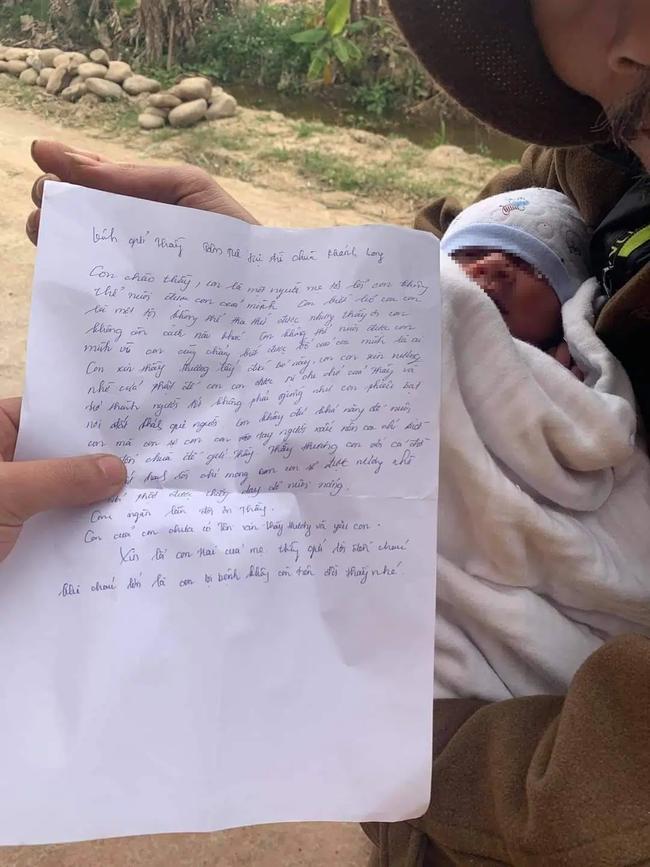 kính quý thầy Tâm Tuệ Sư trụ chùa Khánh Long
Con chào thầy, con là một người mẹ tồi tồi con không
thể nuôi được con của mình Con biết bỏ con con
là một tội không thể tha thứ được nhưng thầy ơi con
không còn cách nào khác Con không thể nuôi được con
mình và con cũng chẳng biết được bố của con mình là ai
Con xin thầy thương lấy đứa bé này, con con xin nương
nhờ cửa phật để con con được đi chỉ của thầy và
trở thành người tử không phải giống như con phiêu bạt
nơi đất khách quê người Con không đủ khả năng để nuôi
con mà con sợ con con vào tay người xấu nên
đến chùa để gửi thầy Thầy thương con với cả đời
chỉ mong con con sẽ được nương nhờ
phật được thầy dạy dỗ nuôi nấng.
Con ngàn lần đội ơn thầy.
Con của con chưa có tên xin thầy thương và yêu con.
Xin lỗi con trai của mẹ, thầy quý
khi cháu lớn là con bị bệnh không còn trên đời thầy nhé.